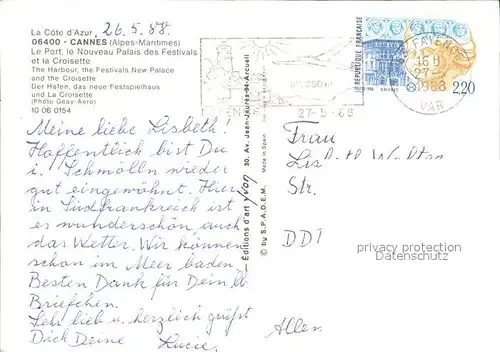 La Côte d'Azur 26.5.88.
06400 - CANNES (Alpes-Maritimes)
Le Port, le Nouveau Palais des Festivals
et la Croisette
The Harbour, the Festivals New Palace
and the Croisette
Der Hafen, das neue Festspielhaus
und La Croisette
(Photo Geay-Aéro)
10 06 0154
Meine liebe Lisbeth!
Hoffentlich bist Du
i. Schmölln wieder
gut eingewöhnt. Hier
in Südfrankreich ist
es wunderschön, auch
das Wetter. Wir können
schon im Meer baden.
Besten Dank für Dein lb
Briefchen.
Sehr lieb u. herzlich grüßt
Dich Deine Lucie.
Editions d'art yvon 30, Av. Jean-Jaurès-94-Arcueil
© by S.P.A.D.E.M. Made in Spain
27-5-88
REPUBLIQUE FRANÇAISE
2,20
FAYENCE
16 H
27-
1988
VAR
Frau
Str.
DDR
Allem.
privacy protection
www.ansichtskarten-center.de